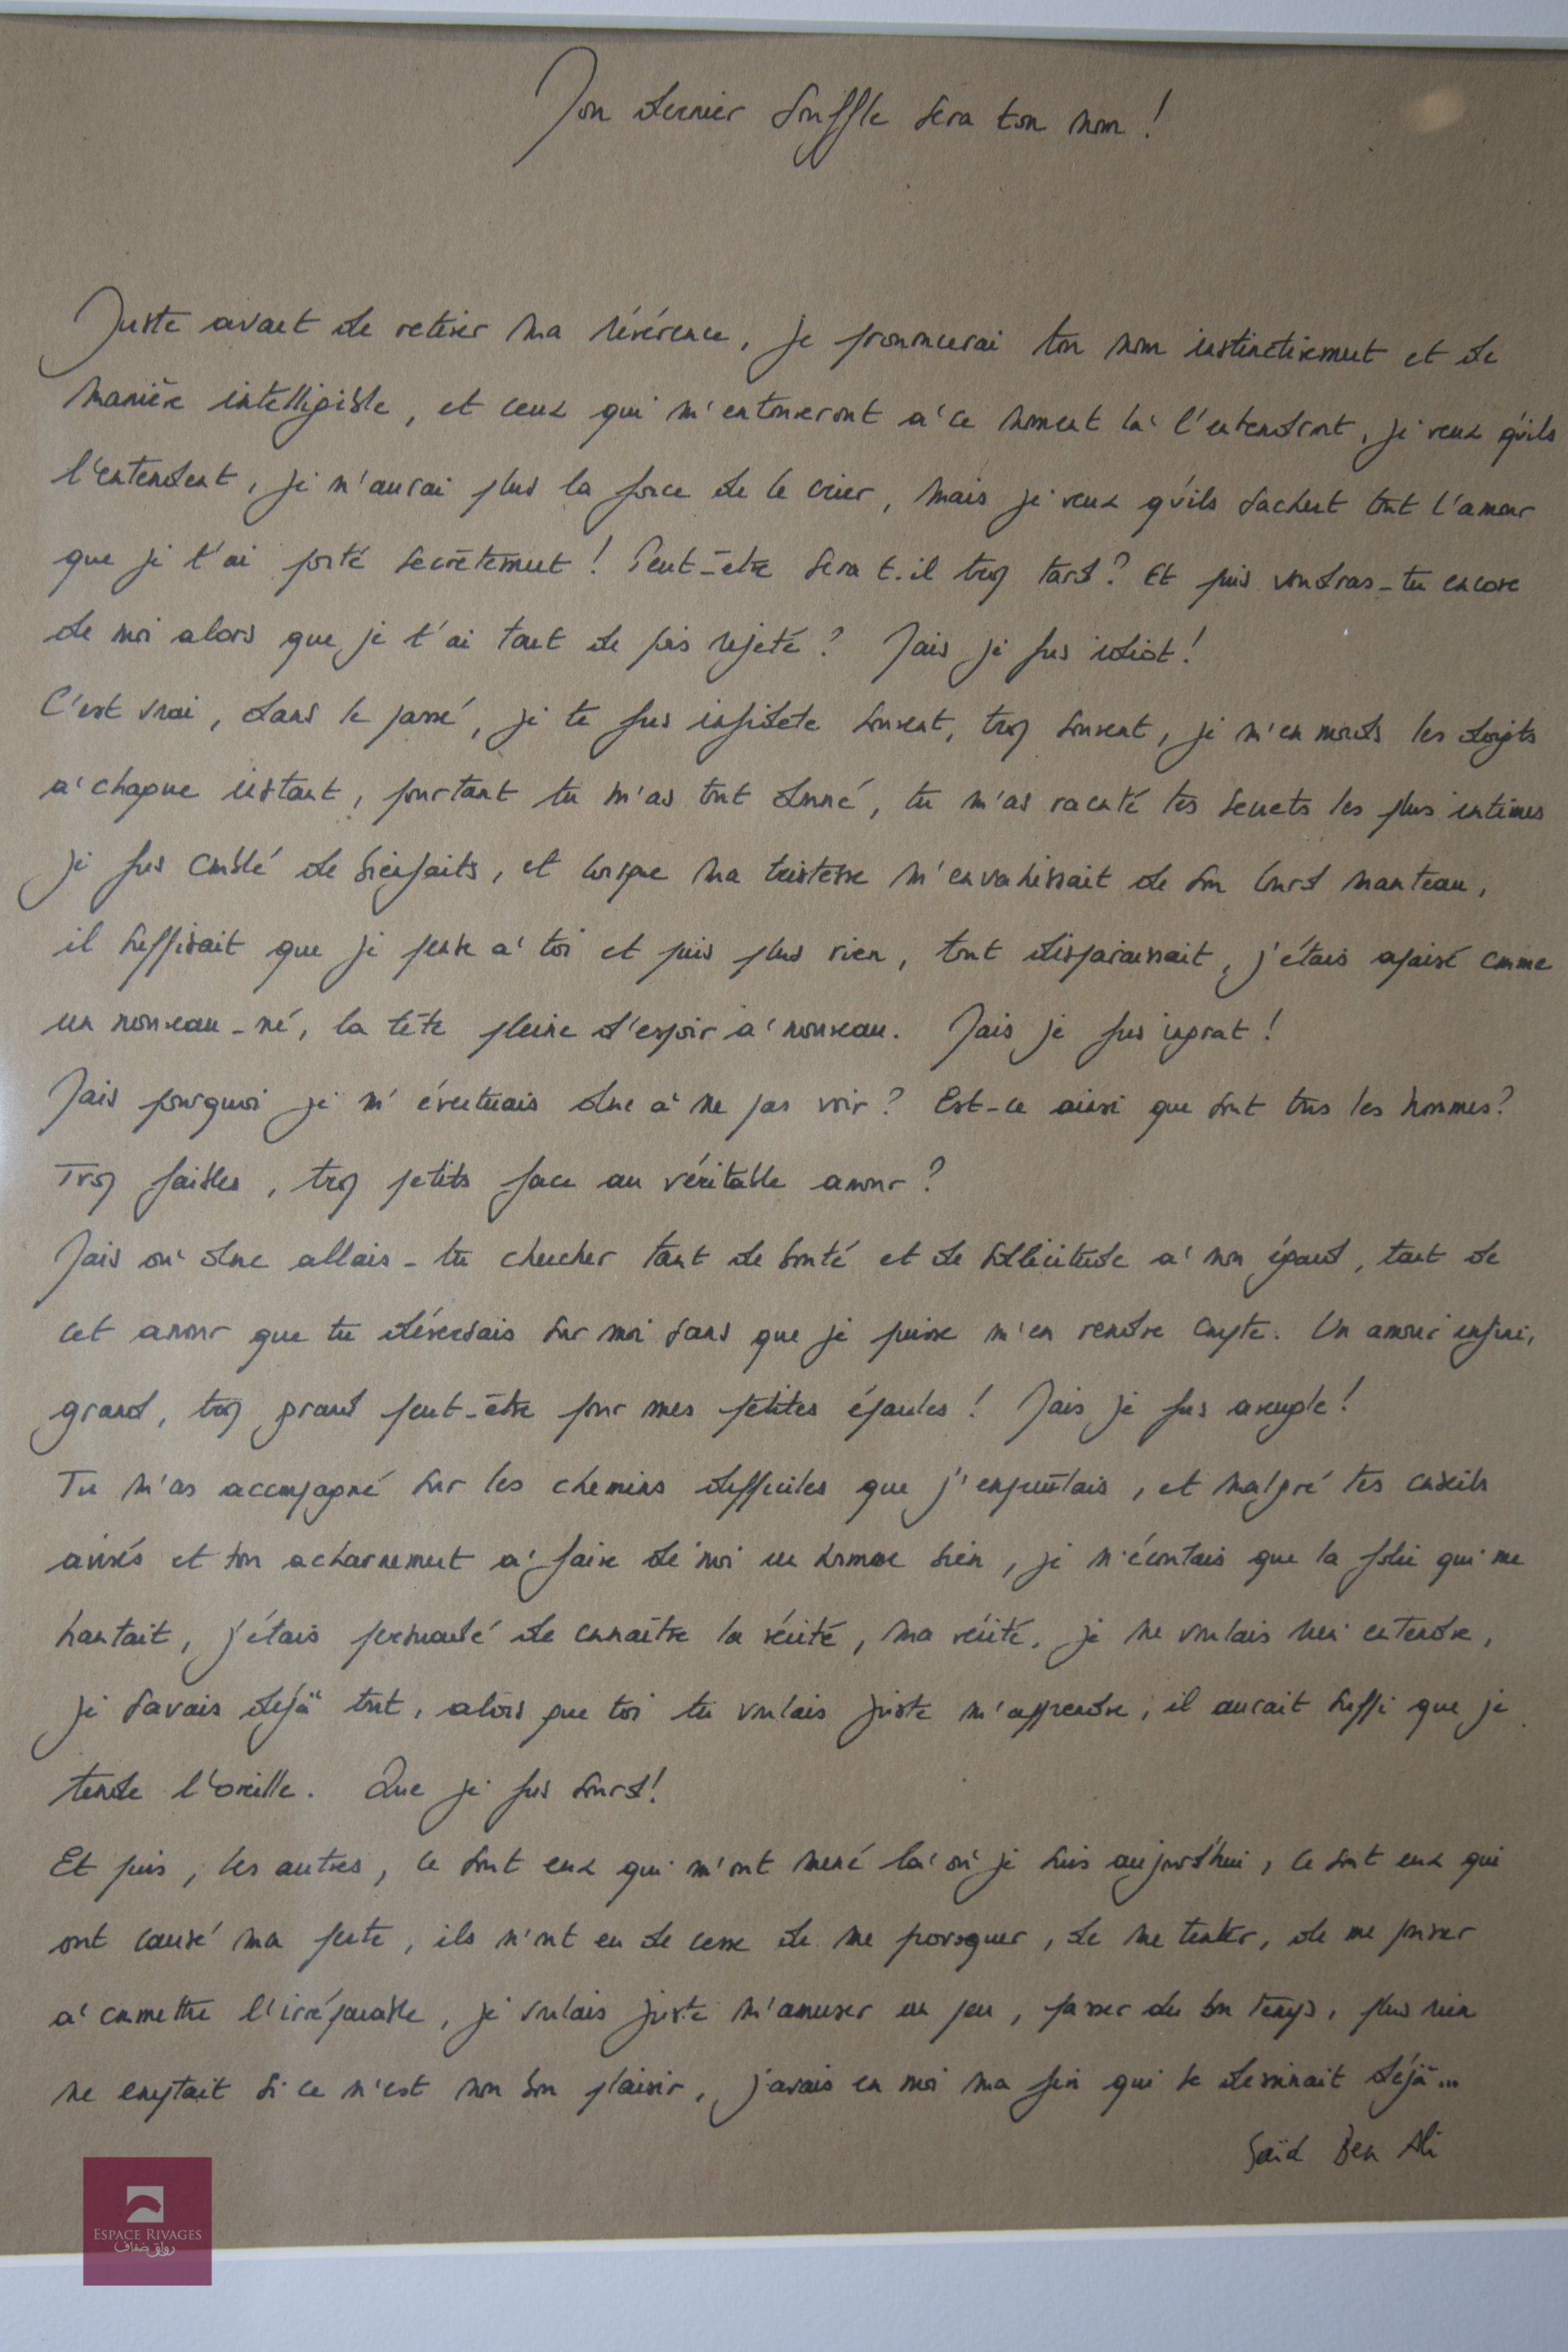 Mon dernier souffle sera ton nom !
Juste avant de retirer ma révérence, je prononcerai ton nom instinctivement et de
manière intelligible, et ceux qui m'entoureront à ce moment là l'entendront, je veux qu'ils
l'entendent, je n'aurai plus la force de le crier, mais je veux qu'ils sachent tout l'amour
que je t'ai porté secrètement ! Peut-être sera t-il trop tard ? Et puis voudras-tu encore
de moi alors que je t'ai tant de fois rejeté ? Mais je fus idiot !
C'est vrai, dans le passé, je te fus infidèle souvent, trop souvent, je m'en mords les doigts
à chaque instant, pourtant tu m'as tout donné, tu m'as raconté tes secrets les plus intimes
je fus comblé de bienfaits, et lorsque ma tristesse m'envahissait de son lourd manteau,
il suffisait que je pense à toi et puis plus rien, tout disparaissait, j'étais apaisé comme
un nouveau-né, la tête pleine d'espoir à nouveau. Mais je fus ingrat !
Mais pourquoi je m'évertuais donc à ne pas voir ? Est-ce ainsi que sont tous les hommes ?
Trop faibles, trop petits face au véritable amour ?
Mais où donc allais-tu chercher tant de bonté et de sollicitude à mon égard, tant de
cet amour que tu déversais sur moi sans que je puisse m'en rendre compte. Un amour infini,
grand, trop grand peut-être pour mes petites épaules ! Mais je fus aveugle !
Tu m'as accompagné sur les chemins difficiles que j'empruntais, et malgré tes conseils
avisés et ton acharnement à faire de moi un homme bien, je n'écoutais que la folie qui me
hantait, j'étais persuadé de connaître la vérité, ma vérité, je ne voulais rien entendre,
je savais déjà tout, alors que toi tu voulais juste m'apprendre, il aurait suffi que je
tende l'oreille. Que je fus sourd !
Et puis, les autres, ce sont eux qui m'ont mené là où je suis aujourd'hui, ce sont eux qui
ont causé ma perte, ils n'ont eu de cesse de me, de me tenter, de me pousser
à commettre l'irréparable, je voulais juste m'amuser un peu, passer du bon temps, plus rien
ne comptait si ce n'est mon bon plaisir, j'avais en moi ma fin qui se dessinait déjà...
Saïd Ben Ali
ESPACE RIVAGES
رواق ضفاف